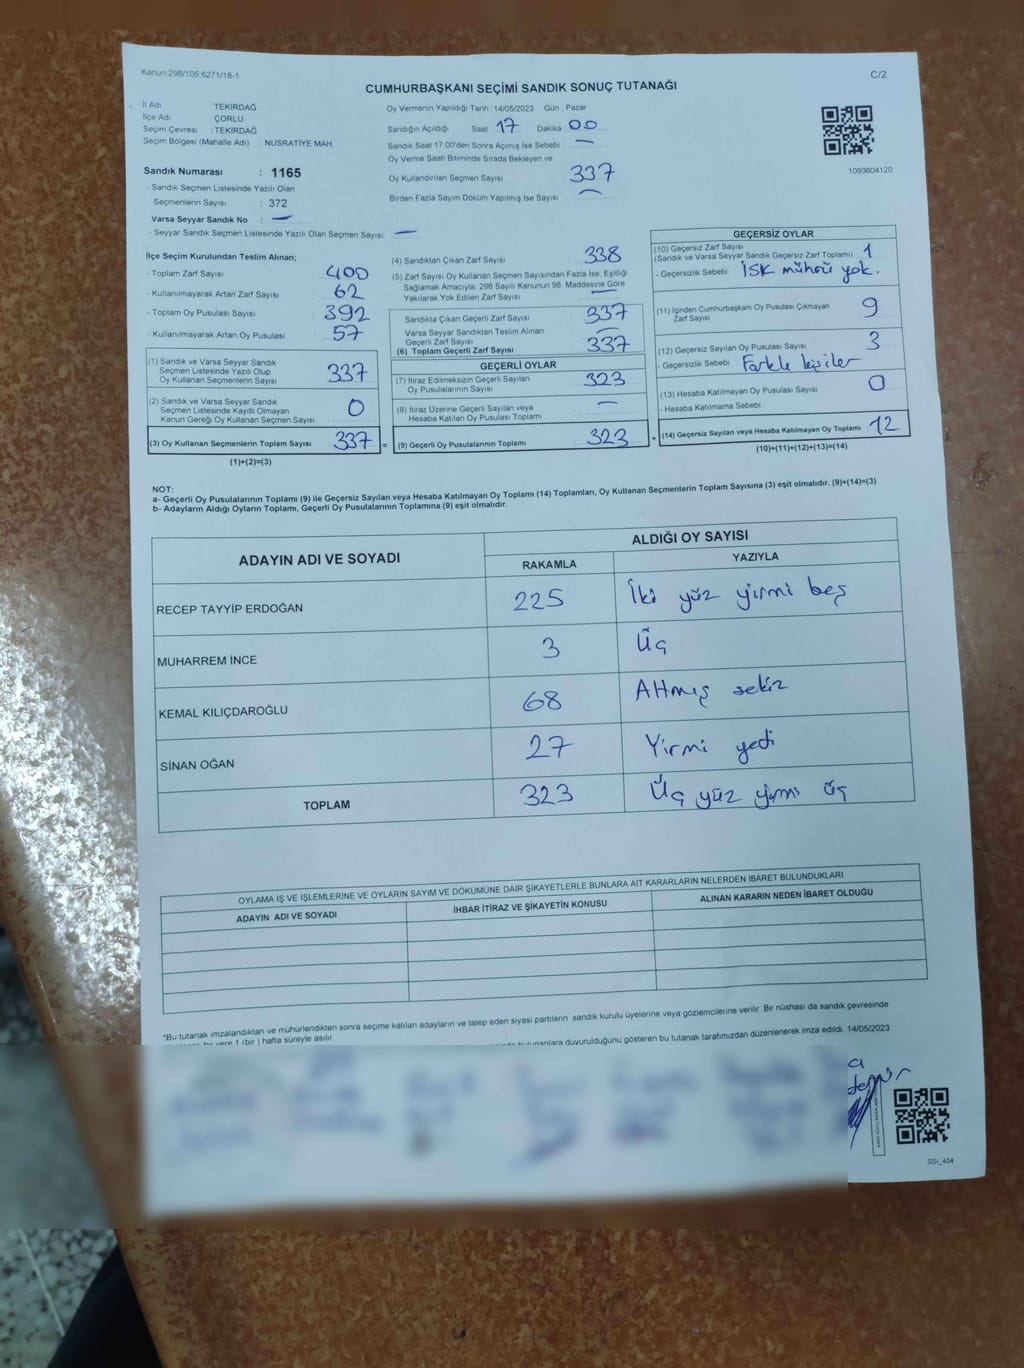 Kanun:298/105,6271/18-1
C/2
CUMHURBAŞKANI SEÇİMİ SANDIK SONUÇ TUTANAĞI
İl Adı : TEKİRDAĞ
İlçe Adı : ÇORLU
Seçim Çevresi : TEKİRDAĞ
Seçim Bölgesi (Mahalle Adı) : NUSRATIYE MAH.
Sandık Numarası : 1165
- Sandık Seçmen Listesinde Yazılı Olan
Seçmenlerin Sayısı : 372
Varsa Seyyar Sandık No : —
- Seyyar Sandık Seçmen Listesinde Yazılı Olan Seçmen Sayısı: —
Oy Vermenin Yapıldığı Tarih :14/05/2023 Gün : Pazar
Sandığın Açıldığı Saat 17 Dakika 00
Sandık Saat 17:00'den Sonra Açımış İse Sebebi : —
Oy Verme Saati Bitiminde Sırada Bekleyen ve
Oy Kullandırılan Seçmen Sayısı : 337
Birden Fazla Sayım Döküm Yapılmış İse Sayısı : —
1093604120
İlçe Seçim Kurulundan Teslim Alınan;
- Toplam Zarf Sayısı : 400
- Kullanılmayarak Artan Zarf Sayısı : 62
- Toplam Oy Pusulası Sayısı : 392
- Kullanılmayarak Artan Oy Pusulası : 57
(1) Sandık ve Varsa Seyyar Sandık
Seçmen Listesinde Yazılı Olup
Oy Kullanan Seçmenlerin Sayısı : 337
(2) Sandık ve Varsa Seyyar Sandık
Seçmen Listesinde Kayıtlı Olmayan
Kanun Gereği Oy Kullanan Seçmen Sayısı : 0
(3) Oy Kullanan Seçmenlerin Toplam Sayısı : 337 =
(1)+(2)=(3)
(4) Sandıktan Çıkan Zarf Sayısı : 338
(5) Zarf Sayısı Oy Kullanan Seçmen Sayısından Fazla İse, Eşitliği
Sağlamak Amacıyla; 298 Sayılı Kanunun 98. Maddesine Göre
Yakılarak Yok Edilen Zarf Sayısı : —
Sandıkta Çıkan Geçerli Zarf Sayısı : 337
Varsa Seyyar Sandıktan Teslim Alınan
Geçerli Zarf Sayısı : —
(6) Toplam Geçerli Zarf Sayısı : 337
GEÇERLİ OYLAR
(7) İtiraz Edilmeksizin Geçerli Sayılan
Oy Pusulalarının Sayısı : 323
(8) İtiraz Üzerine Geçerli Sayılan veya
Hesaba Katılan Oy Pusulası Toplamı : —
(9) Geçerli Oy Pusulalarının Toplamı : 323 +
GEÇERSİZ OYLAR
(10) Geçersiz Zarf Sayısı
(Sandık ve Varsa Seyyar Sandık Geçersiz Zarf Toplamı) : 1
- Geçersizlik Sebebi : İSK mühürü yok.
(11) İçinden Cumhurbaşkanı Oy Pusulası Çıkmayan
Zarf Sayısı : 9
(12) Geçersiz Sayılan Oy Pusulası Sayısı : 3
- Geçersizlik Sebebi : Farklı kişiler
(13) Hesaba Katılmayan Oy Pusulası Sayısı : 0
- Hesaba Katılmama Sebebi :
(14) Geçersiz Sayılan veya Hesaba Katılmayan Oy Toplamı : 12
(10)+(11)+(12)+(13)=(14)
NOT:
a- Geçerli Oy Pusulalarının Toplamı (9) ile Geçersiz Sayılan veya Hesaba Katılmayan Oy Toplamı (14) Toplamları, Oy Kullanan Seçmenlerin Toplam Sayısına (3) eşit olmalıdır. (9)+(14)=(3)
b- Adayların Aldığı Oyların Toplamı, Geçerli Oy Pusulalarının Toplamına (9) eşit olmalıdır.
ADAYIN ADI VE SOYADI
ALDIĞI OY SAYISI
RAKAMLA YAZIYLA
RECEP TAYYİP ERDOĞAN 225 İki yüz yirmi beş
MUHARREM İNCE 3 Üç
KEMAL KILIÇDAROĞLU 68 Altmış sekiz
SİNAN OĞAN 27 Yirmi yedi
TOPLAM 323 Üç yüz yirmi üç
OYLAMA İŞ VE İŞLEMLERİNE VE OYLARIN SAYIM VE DÖKÜMÜNE DAİR ŞİKAYETLERLE BUNLARA AİT KARARLARIN NELERDEN İBARET BULUNDUKLARI
ADAYIN ADI VE SOYADI
İHBAR İTİRAZ VE ŞİKAYETİN KONUSU
ALINAN KARARIN NEDEN İBARET OLDUĞU
*Bu tutanak imzalandıktan ve mühürlendikten sonra seçime katılan adayların ve talep eden siyasi partilerin sandık kurulu üyelerine veya gözlemcilerine verilir. Bir nüshası da sandık çevresinde
bir yere 1 (bir) hafta süreyle asılır.
bulunanlara duyurulduğunu gösteren bu tutanak tarafımızdan düzenlenerek imza edildi. 14/05/2023
SSI_404